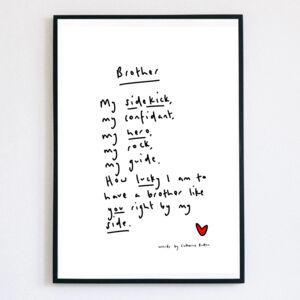 Brother
My sidekick,
my confidant,
my hero,
my rock,
my guide.
How lucky I am to
have a brother like
you right by my
side.
words by Catherine